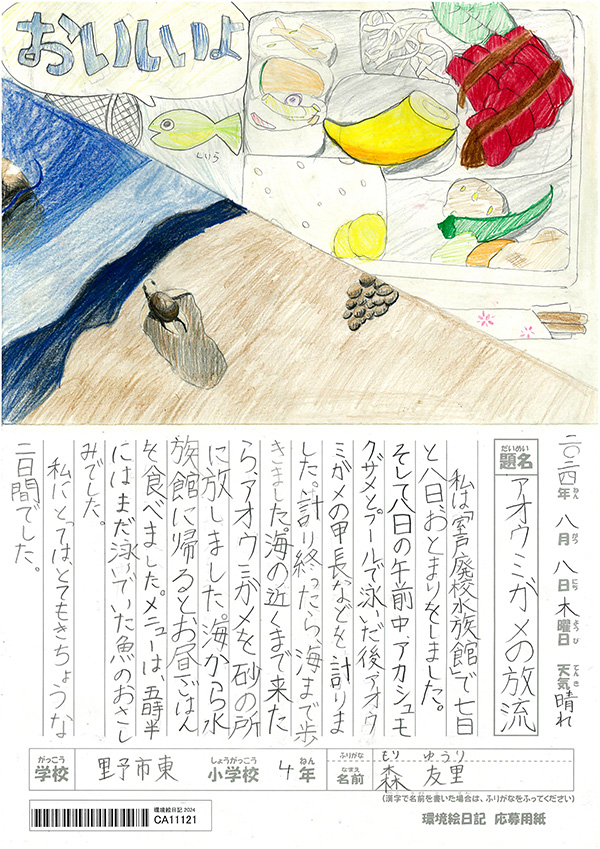 おいしいよ
しいら
二〇二四年 八月 八日 木曜日 天気 晴れ
ねん がつ にち ようび てんき
だいめい
題名 アオウミガメの放流
私は「室戸廃校水族館」で七日
と八日、おとまりをしました。
そして八日の午前中、アカシュモ
クザメとプールで泳いだ後、アオウ
ミガメの甲長などを計りま
した。計り終ったら、海まで歩
きました。海の近くまで来た
ら、アオウミガメを砂の所
に放しました。海から水
族館に帰るとお昼ごはん
を食べました。メニューは、五時半
にはまだ泳いでいた魚のおさし
みでした。
私にとっては、とてもきちょうな
二日間でした。
がっこう しょうがっこう ねん ふりがな もり ゆうり
学校 野市東 小学校 4年 なまえ 名前 森 友里
(漢字で名前を書いた場合は、ふりがなをふってください)
環境絵日記 2024
CA11121
環境絵日記 応募用紙